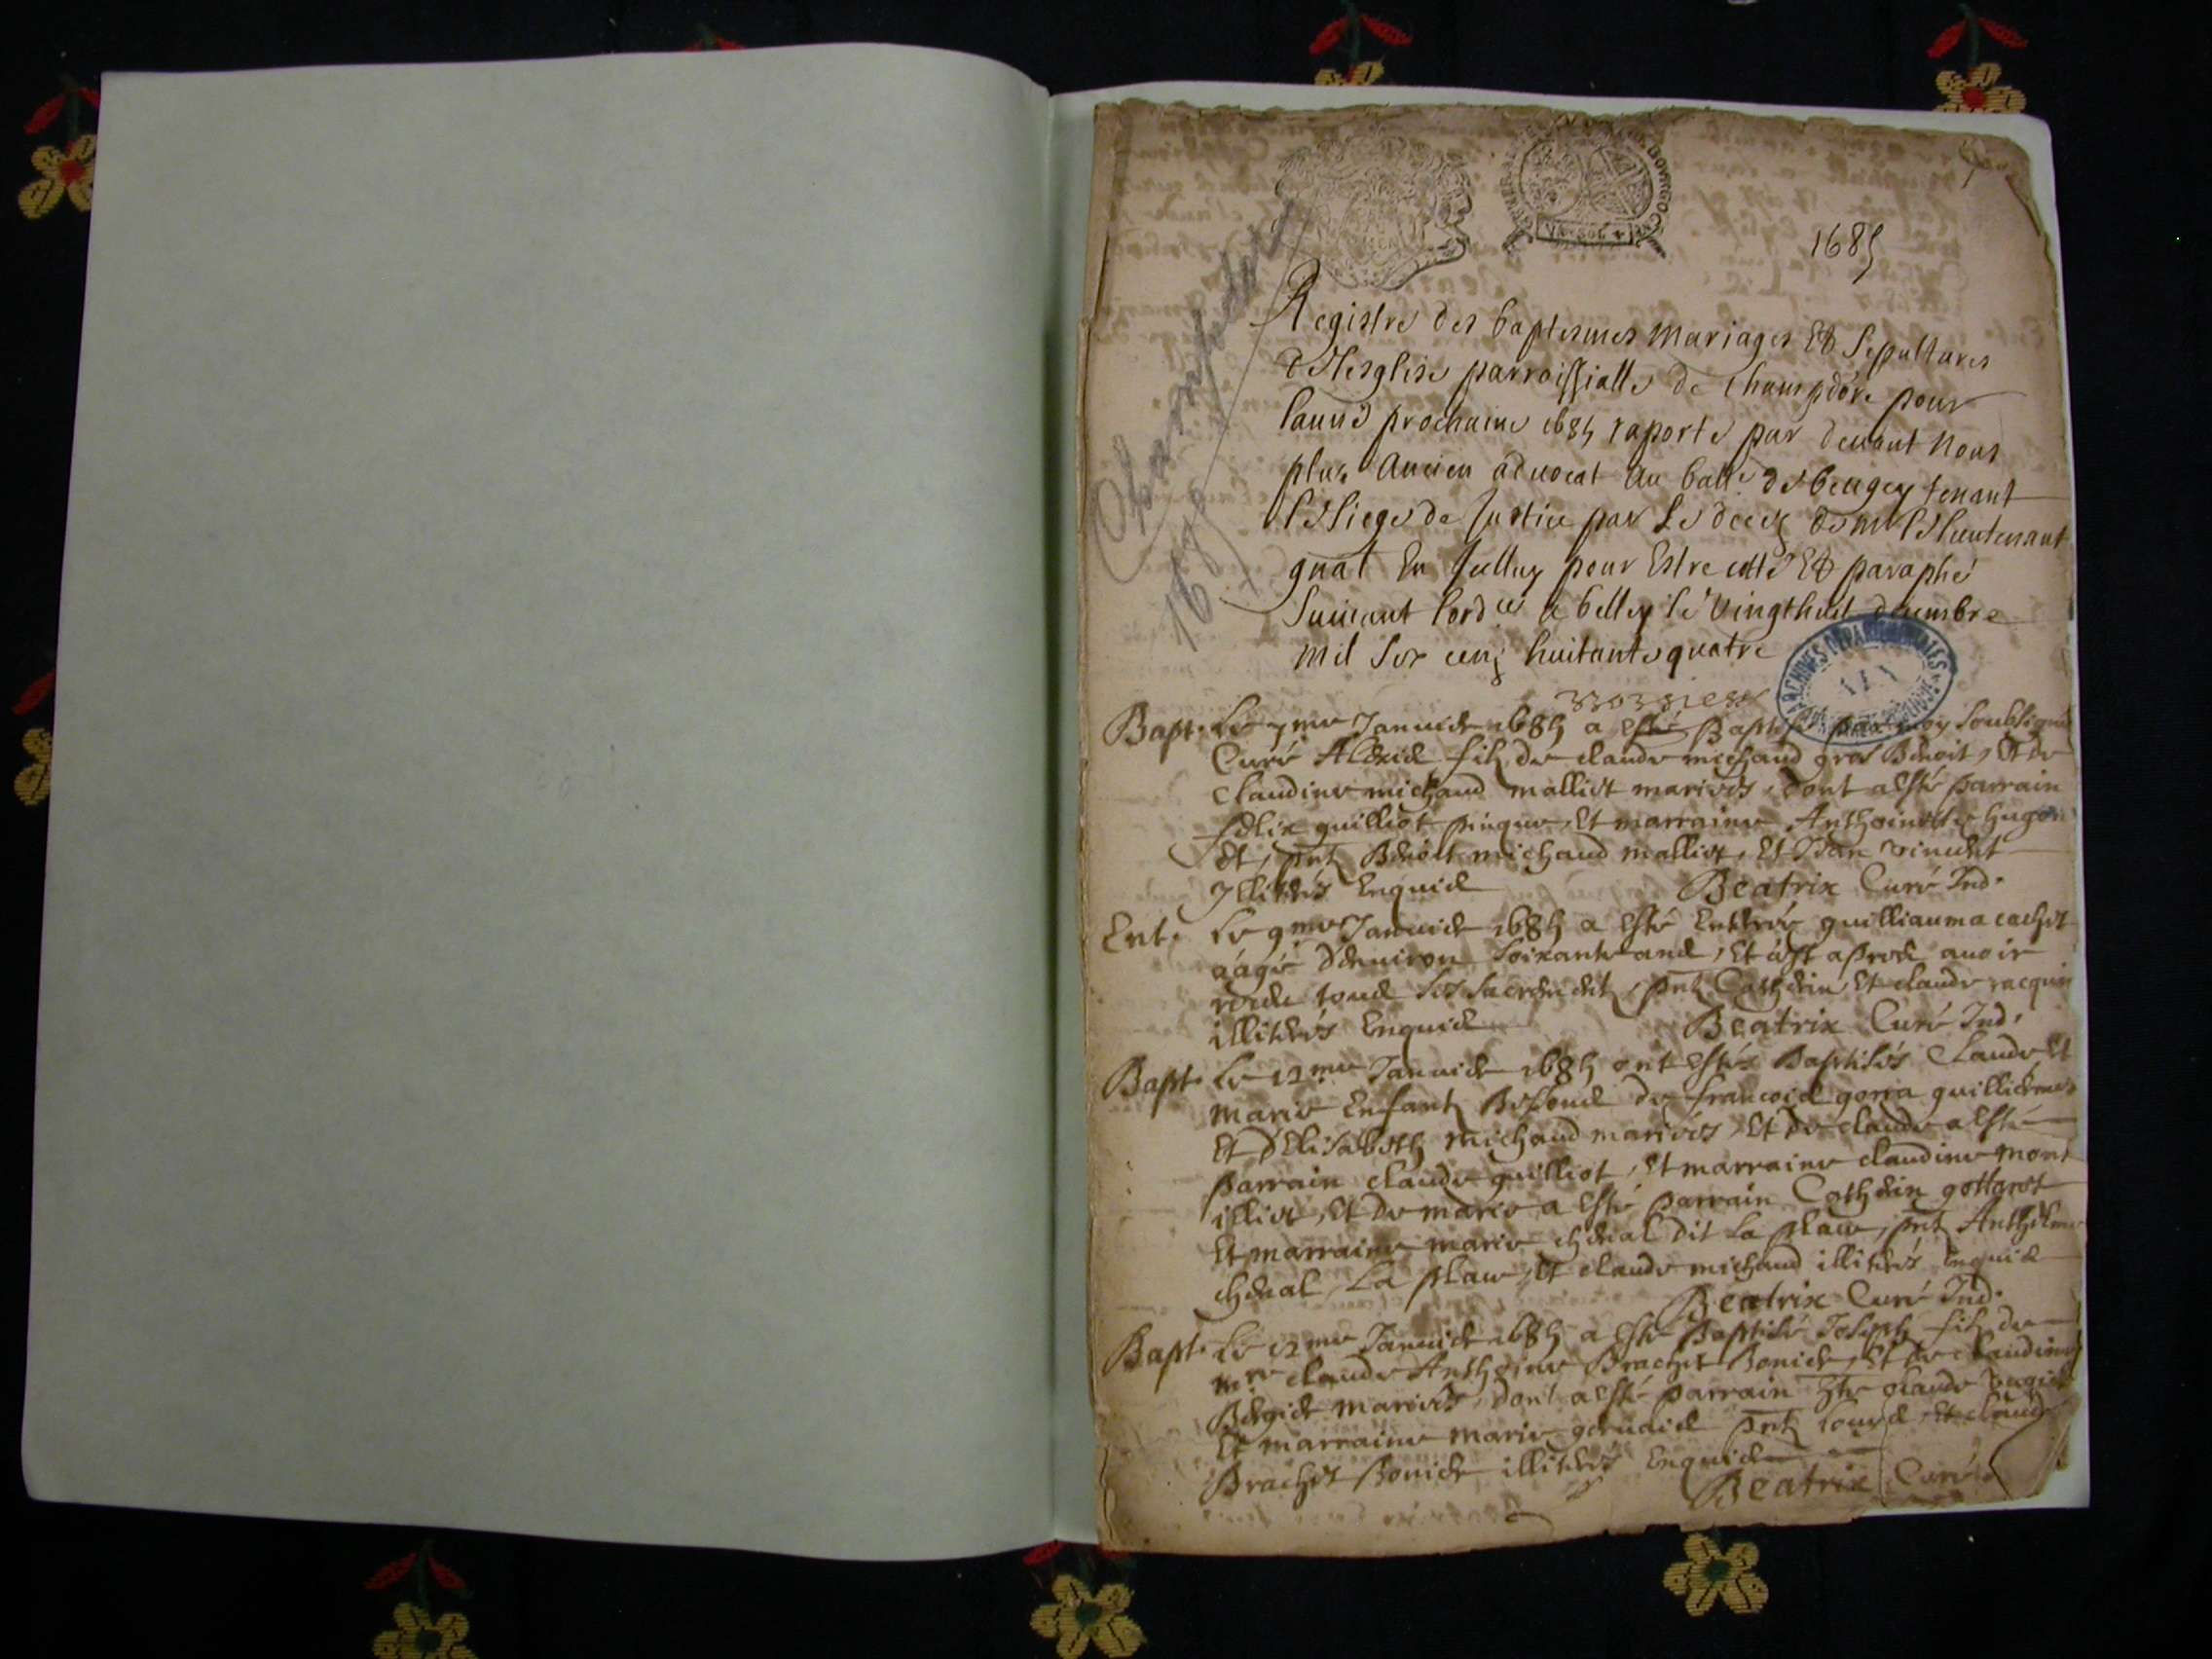 1685
Champdor
1685
Registre des baptesmes mariages Et Sepultures
de lesglise parroissialle de Champdore pour
lanné prochaine 1685 raporté par devant Nous
plus Ancien advocat Au ball.e de beugey tenant
le siege de Justice par le decez de mr le lieutenant
gnal En Icelluy pour Estre cotté Et paraphé
Suivant lord.ce a belley le vingthuit decembre
mil six cens huitante quatre
ARCHIVES DEPARTEMENTALES
Bapt. Le 7me Janvier 1685 a esté Baptisé par moy soubsigné
Curé Alexis fils de claude michaud gros Benoit, Et de
Claudine michaud malliet mariés, dont a esté parrain
felix guilliot pingue, Et marraine Anthoinette hugon
Et, pnts Benoit michaud malliet, Et Jean vincent
Illiterés Enquis Beatrix Curé Ind.
Ent. Le 9me Janvier 1685 a esté Enterré guilliauma cachet
aágée d'environ soixante ans, Et ást apres avoir
receu tous ses sacrements, pnts Cathelin Et claude racquin
illiterés Enquis Beatrix Curé Ind.
Bapt. Le 12me Janvier 1685 ont estés Baptisés Claude Et
marie Enfants Bessons de francois gorra guilliermet
Et d'Elisabeth michaud mariés, Et de claude a esté
parrain claude guilliot, Et marraine claudine mont
illiet, Et de marie a esté parrain Cathelin gottaret
Et marraine marie cheval dit la place, pnts Anthelme
cheval la place, Et claude michaud illiterés Enquis
Beatrix Curé Ind.
Bapt. Le 12me Janvier 1685 a esté Baptisé Joseph fils de
mre claude Anthoine Brachet Bonier, Et de claudine
mariés, dont a esté parrain claude
Et marraine marie gervais pnts louys Et claude
Brachet Bonier illiterés Enquis
Beatrix Curé